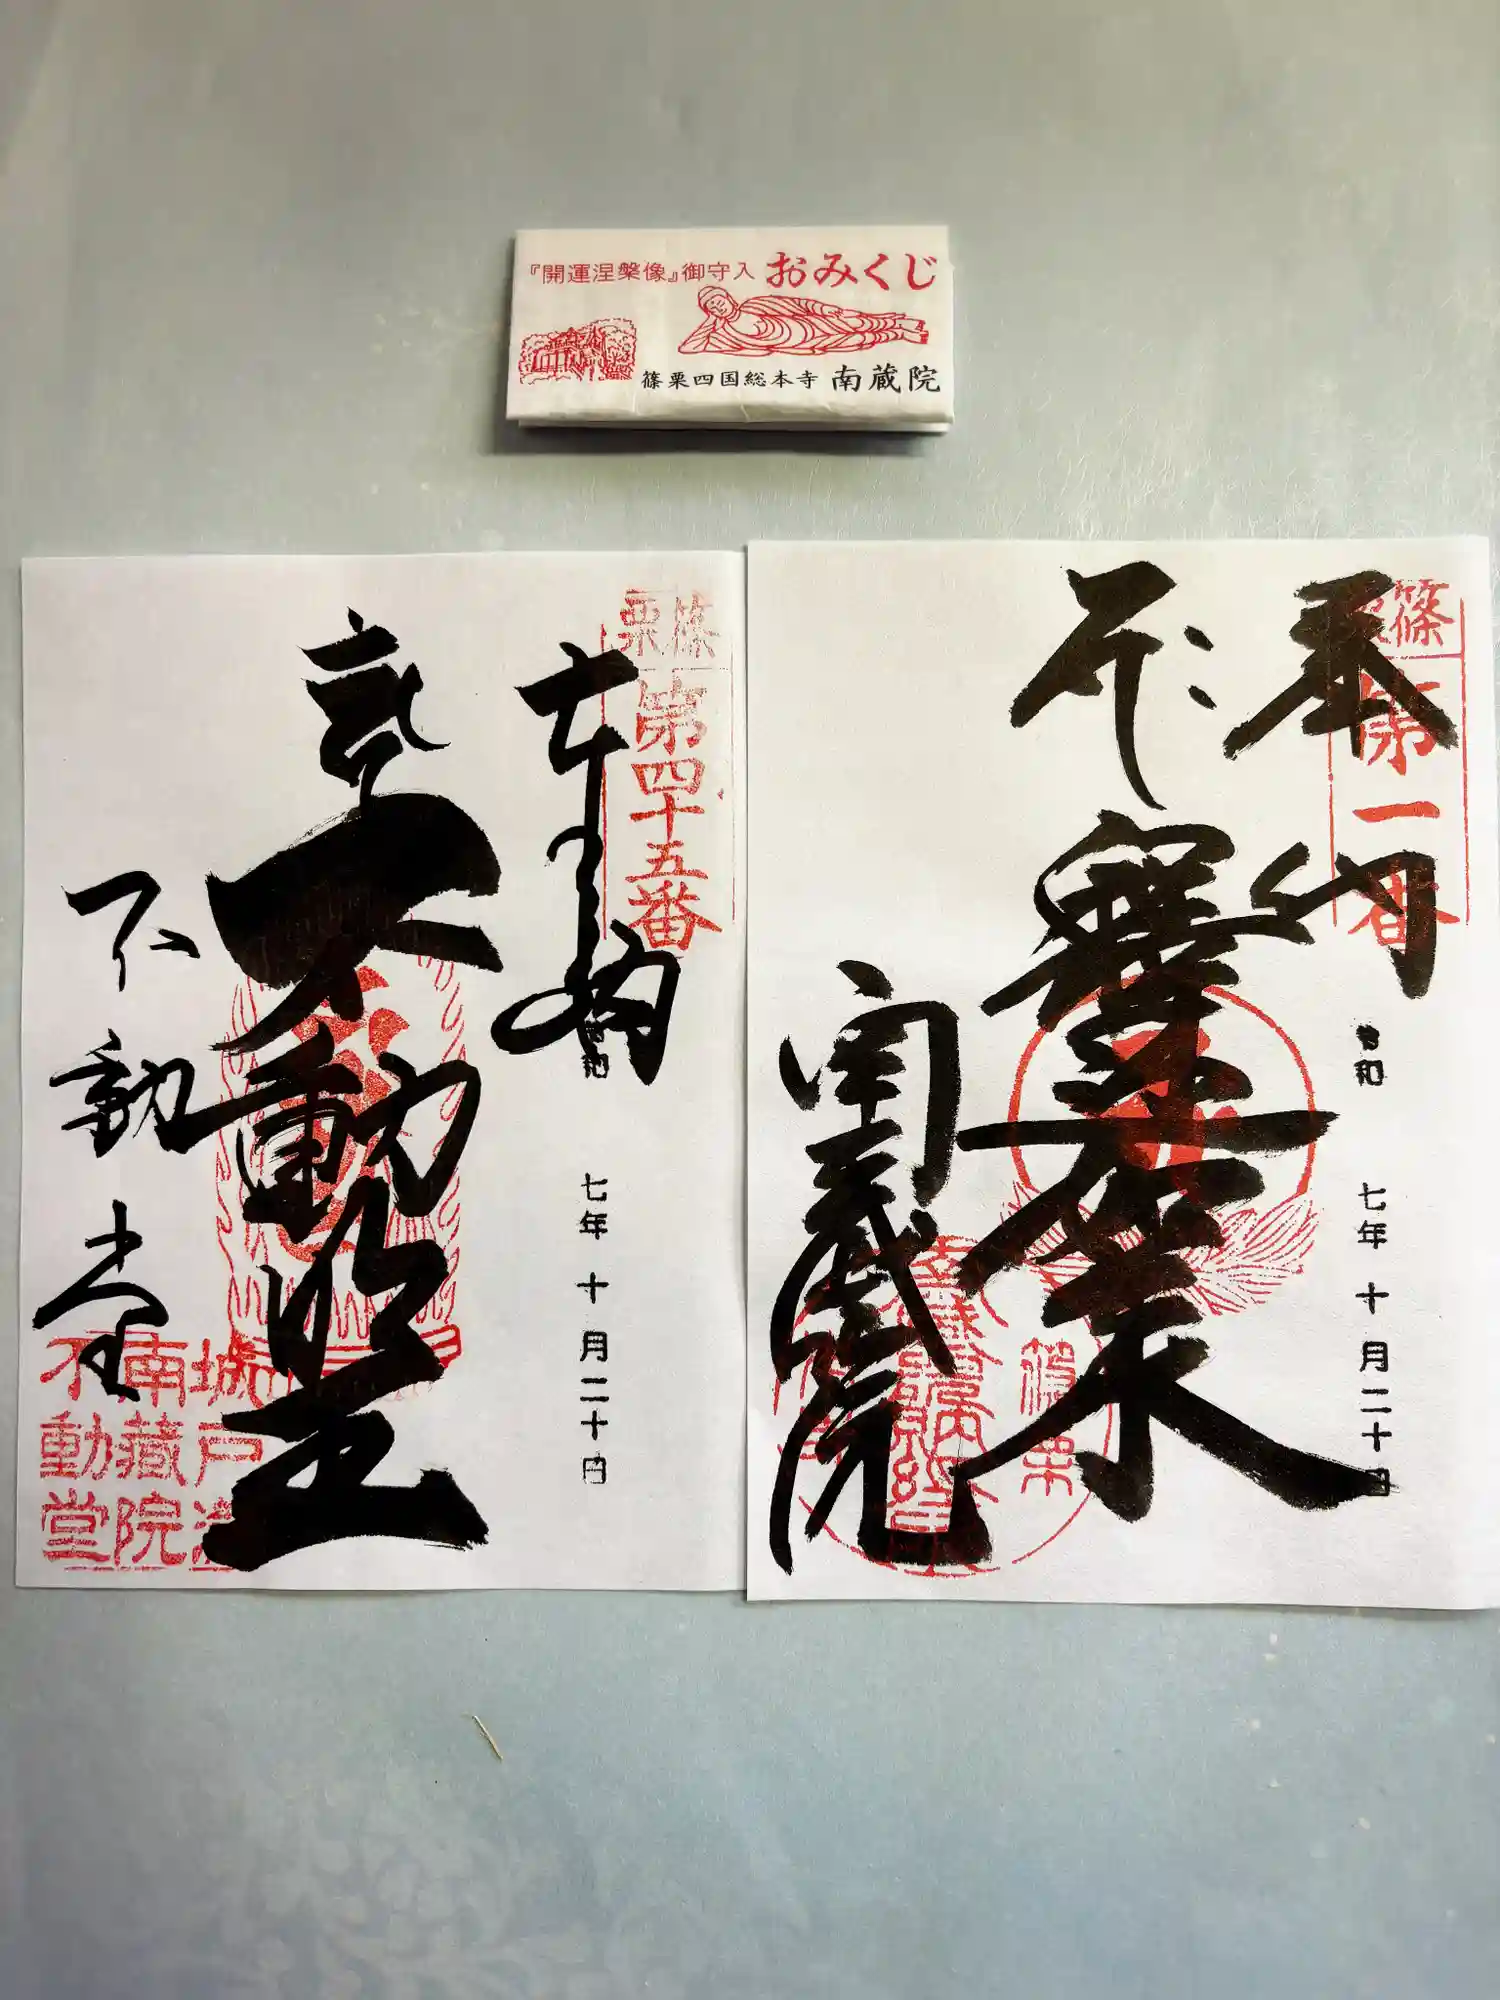 『開運涅槃像』御守入 おみくじ
篠栗四国総本寺 南蔵院
篠栗
第一番
奉納
令和 七年 十月二十日
釋迦如来
南蔵院
篠栗
第四十五番
奉納
令和 七年 十月二十日
不動明王
不動堂
城戸
南蔵院
不動堂